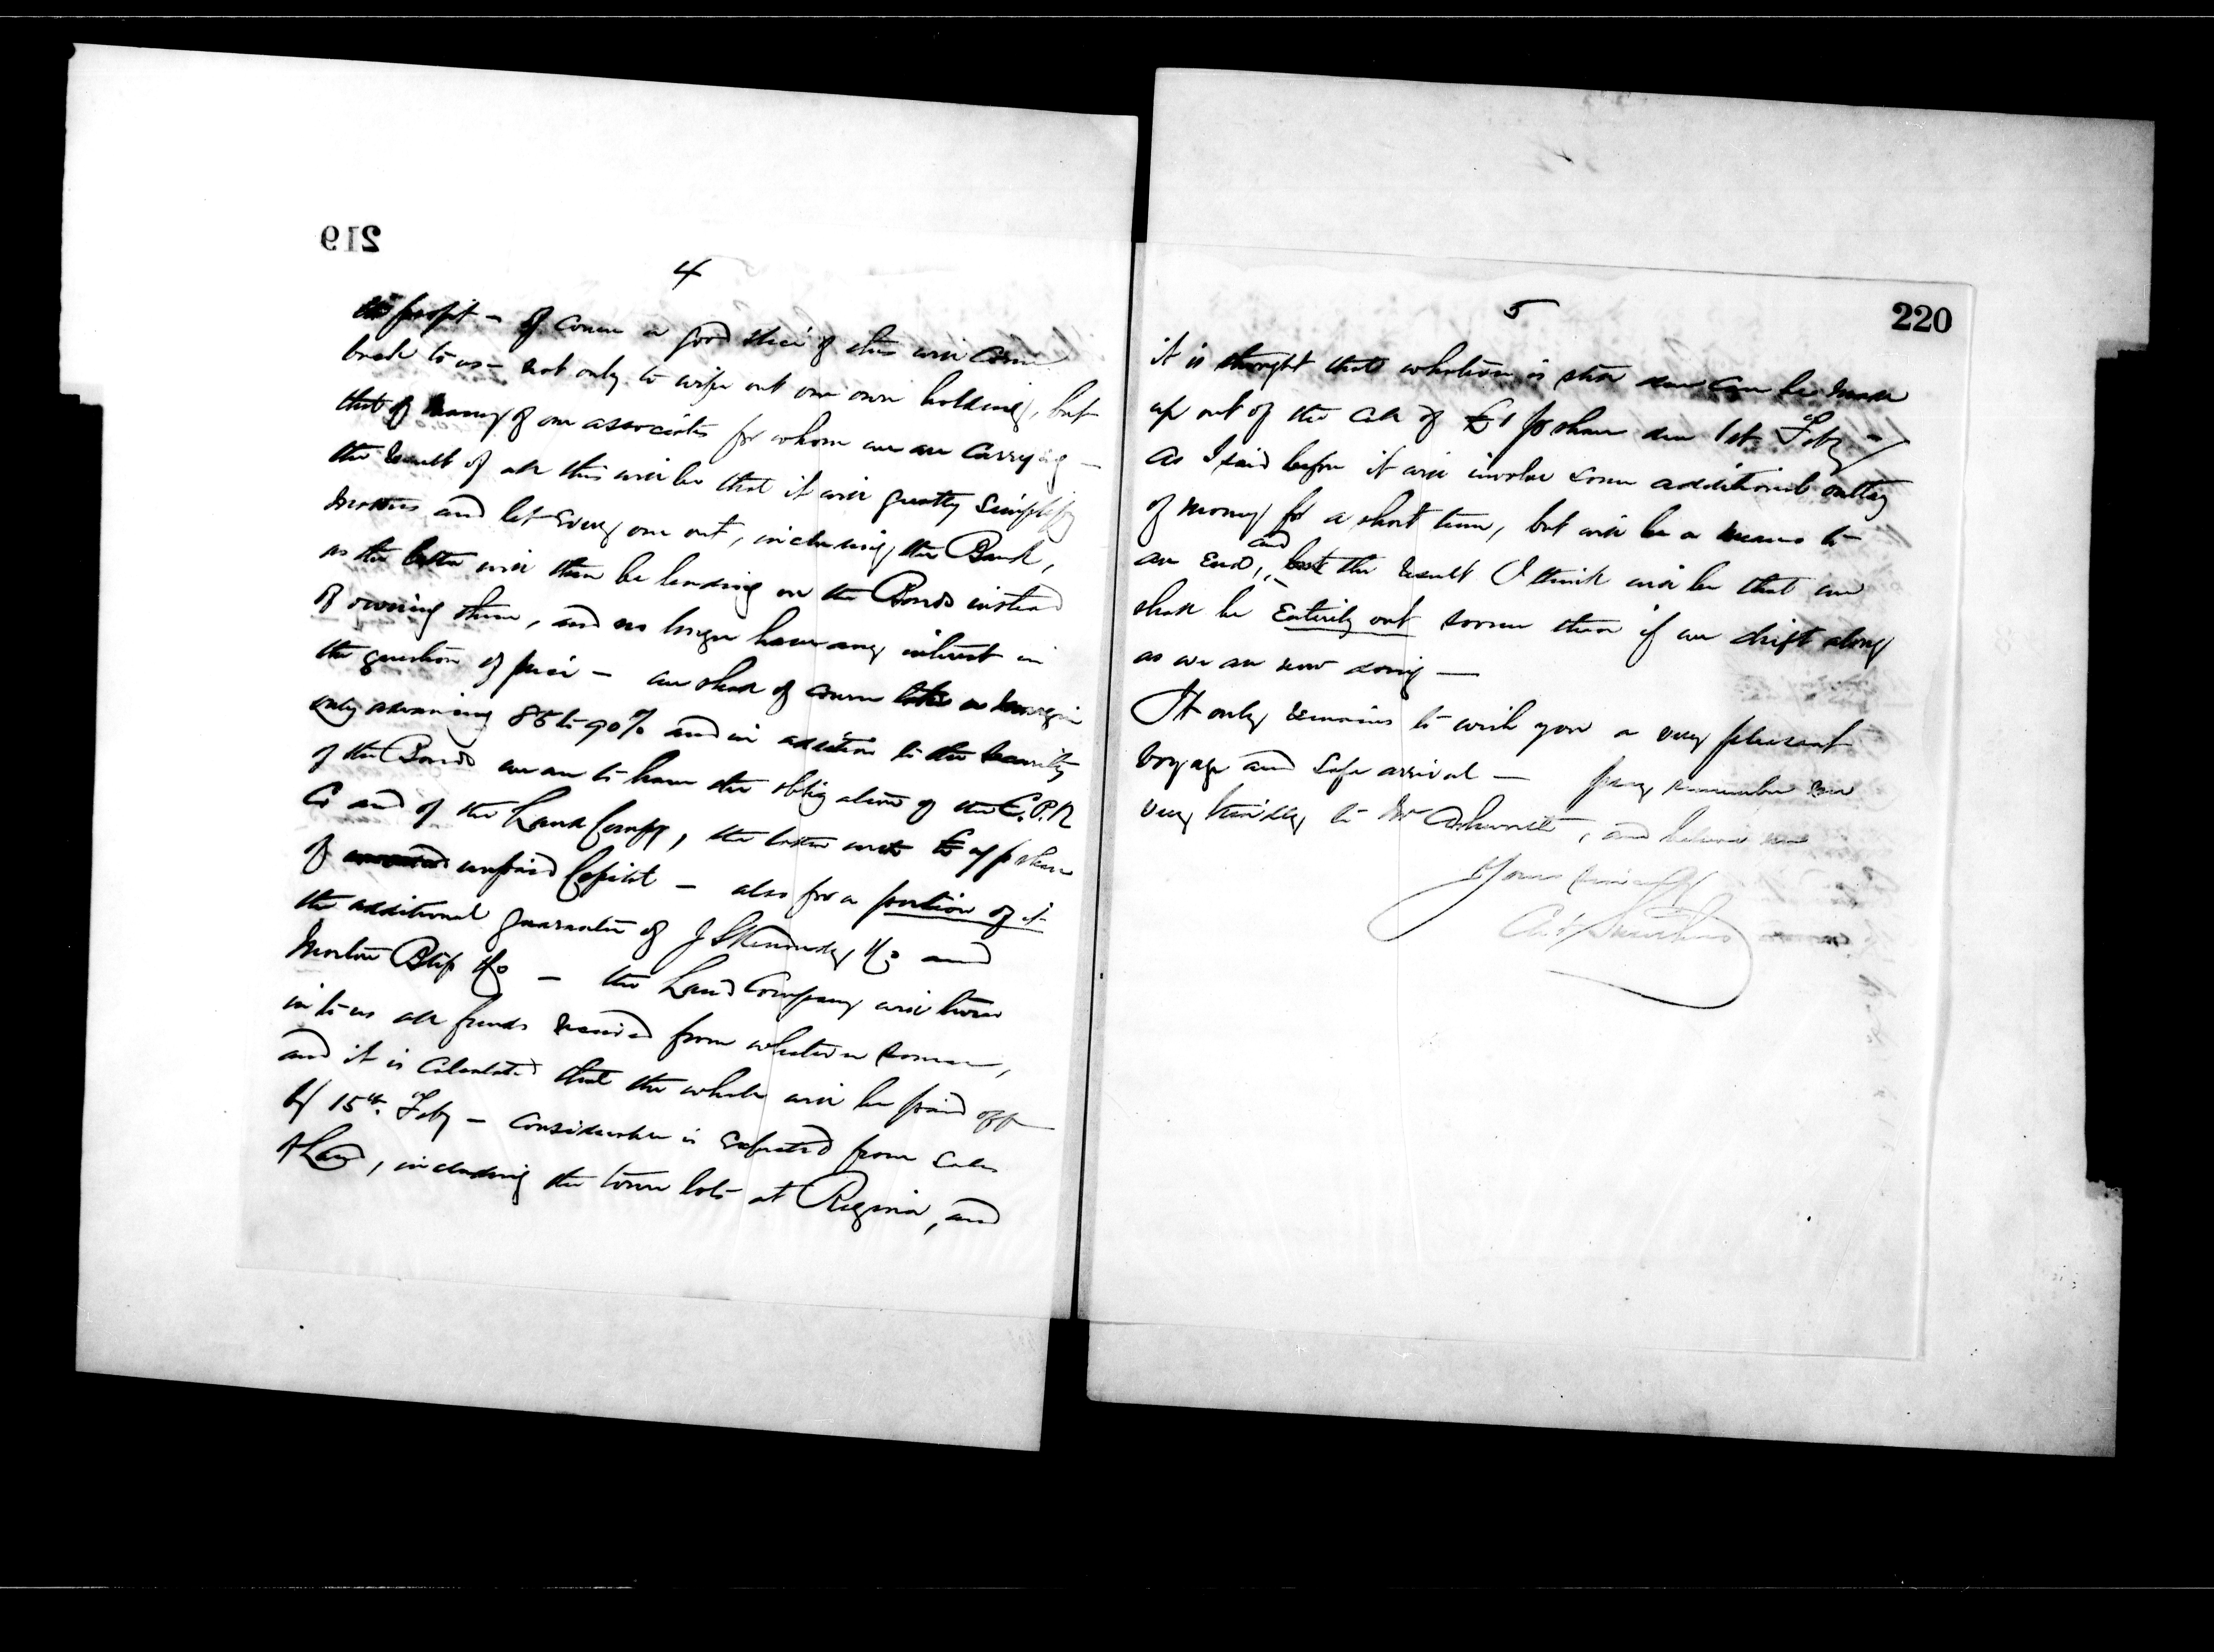 219
4
the profit – of course a good slice of this will come
back to us – not only to wipe out our own holding, but
that of many of our associates for whom we are carrying –
the result of all this will be that it will greatly simplify
matters and let every one out, including the Bank,
as the latter will then be lending on the Bonds instead
of owning them, and no longer have any interest in
the question of price – we shall of course take a margin
only advancing 85 to 90% and in addition to the security
of the Bonds we are to have the obligation of the C.P.R
Co and of the Land Compy, the latter with £ p share
of unpaid Capital – also for a portion of it
the additional guarantee of J S Kennedy & Co and
Morton Bliss & Co – the Land Company will turn
in to us all funds received from whatever source,
and it is calculated that the whole will be paid off
by 15th. Feby – considerable is expected from sales
of Land, including the town lots at Regina, and
220
5
it is thought that whatever is still due can be made
up out of the call of £1 p share due 1st Feby –
As I said before it will involve some additional outlay
of money for a short time, but will be a means to
an end, and the result I think will be that we
shall be entirely out sooner than if we drift along
as we are now doing –
It only remains to wish you a very pleasant
voyage and safe arrival – pray remember me
very kindly to Mr , and believe me
Yours sincerely